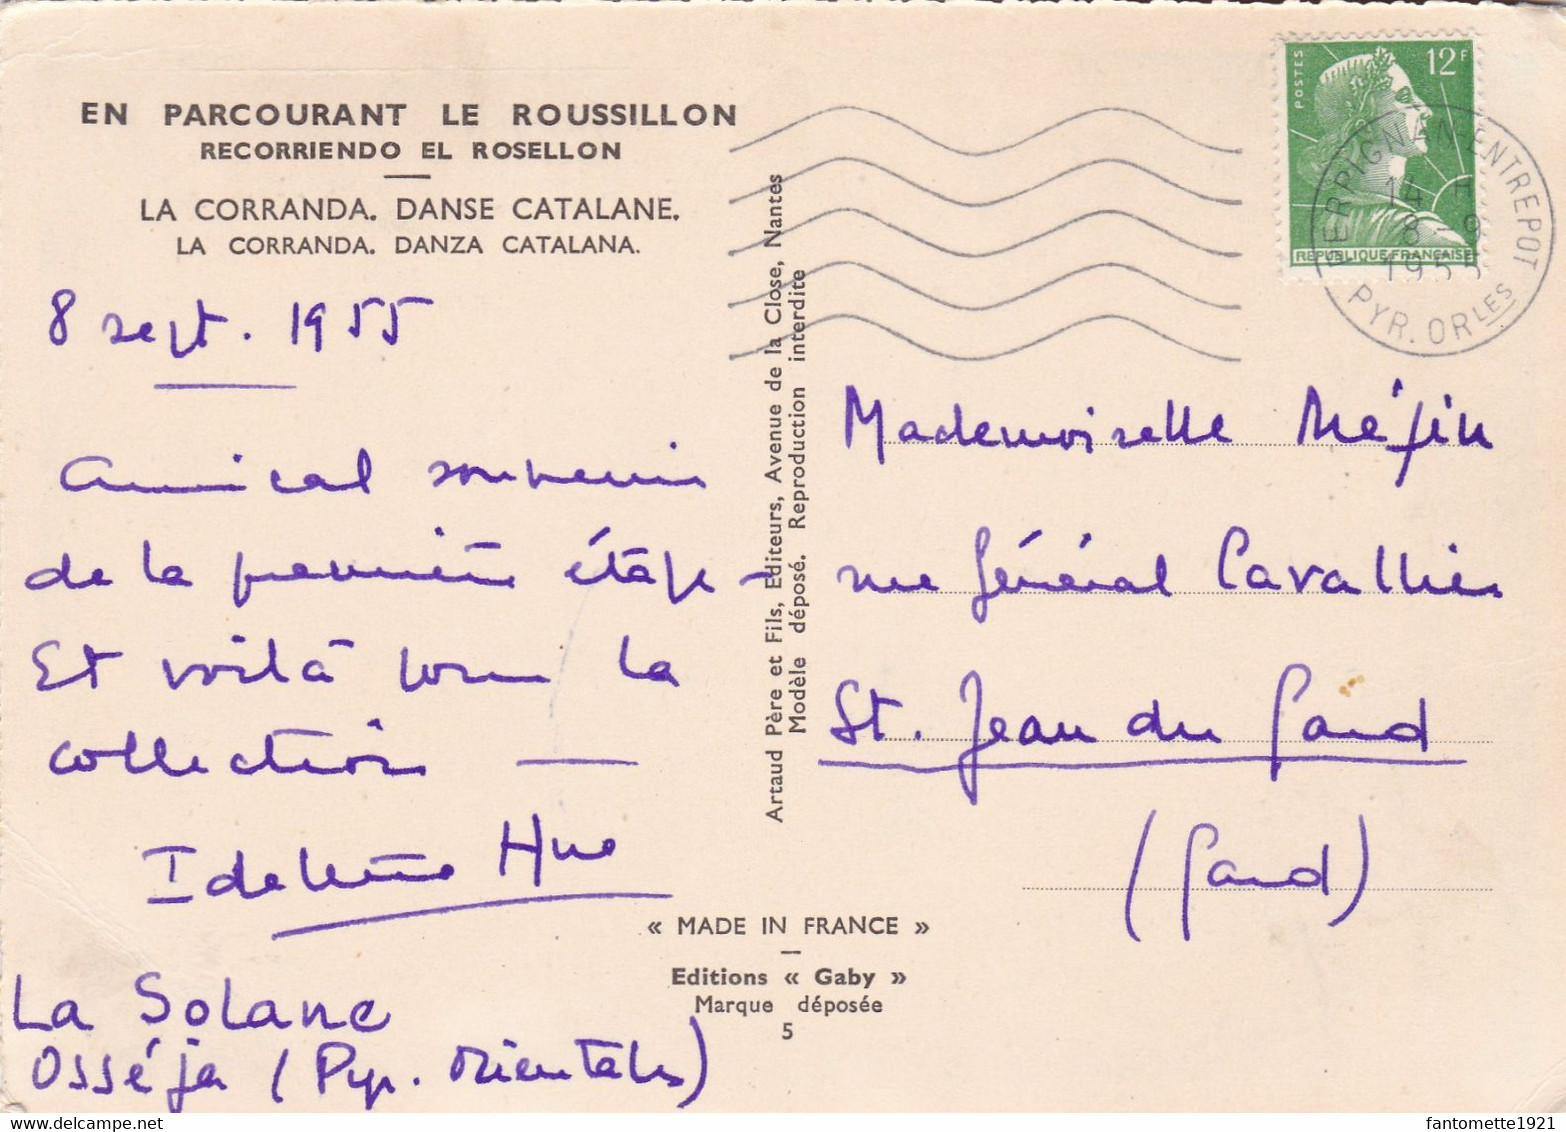 EN PARCOURANT LE ROUSSILLON
RECORRIENDO EL ROSELLON
LA CORRANDA. DANSE CATALANE.
LA CORRANDA. DANZA CATALANA.
8 sept. 1955
Amical souvenir
de la première étape
Et voilà pour la
collection —
Hue
La Solane
Osséja (Pyr. Orientales)
Artaud Père et Fils, Editeurs, Avenue de la Close, Nantes
Modèle déposé. Reproduction interdite
« MADE IN FRANCE »
Editions « Gaby »
Marque déposée
5
POSTES
12F
REPUBLIQUE FRANÇAISE
PERPIGNAN ENTREPOT
14 H
8 - 9
1955
PYR. ORLES
Mademoiselle
rue Général Cavallier
St. Jean du Gard
(Gard)
fantomette1921